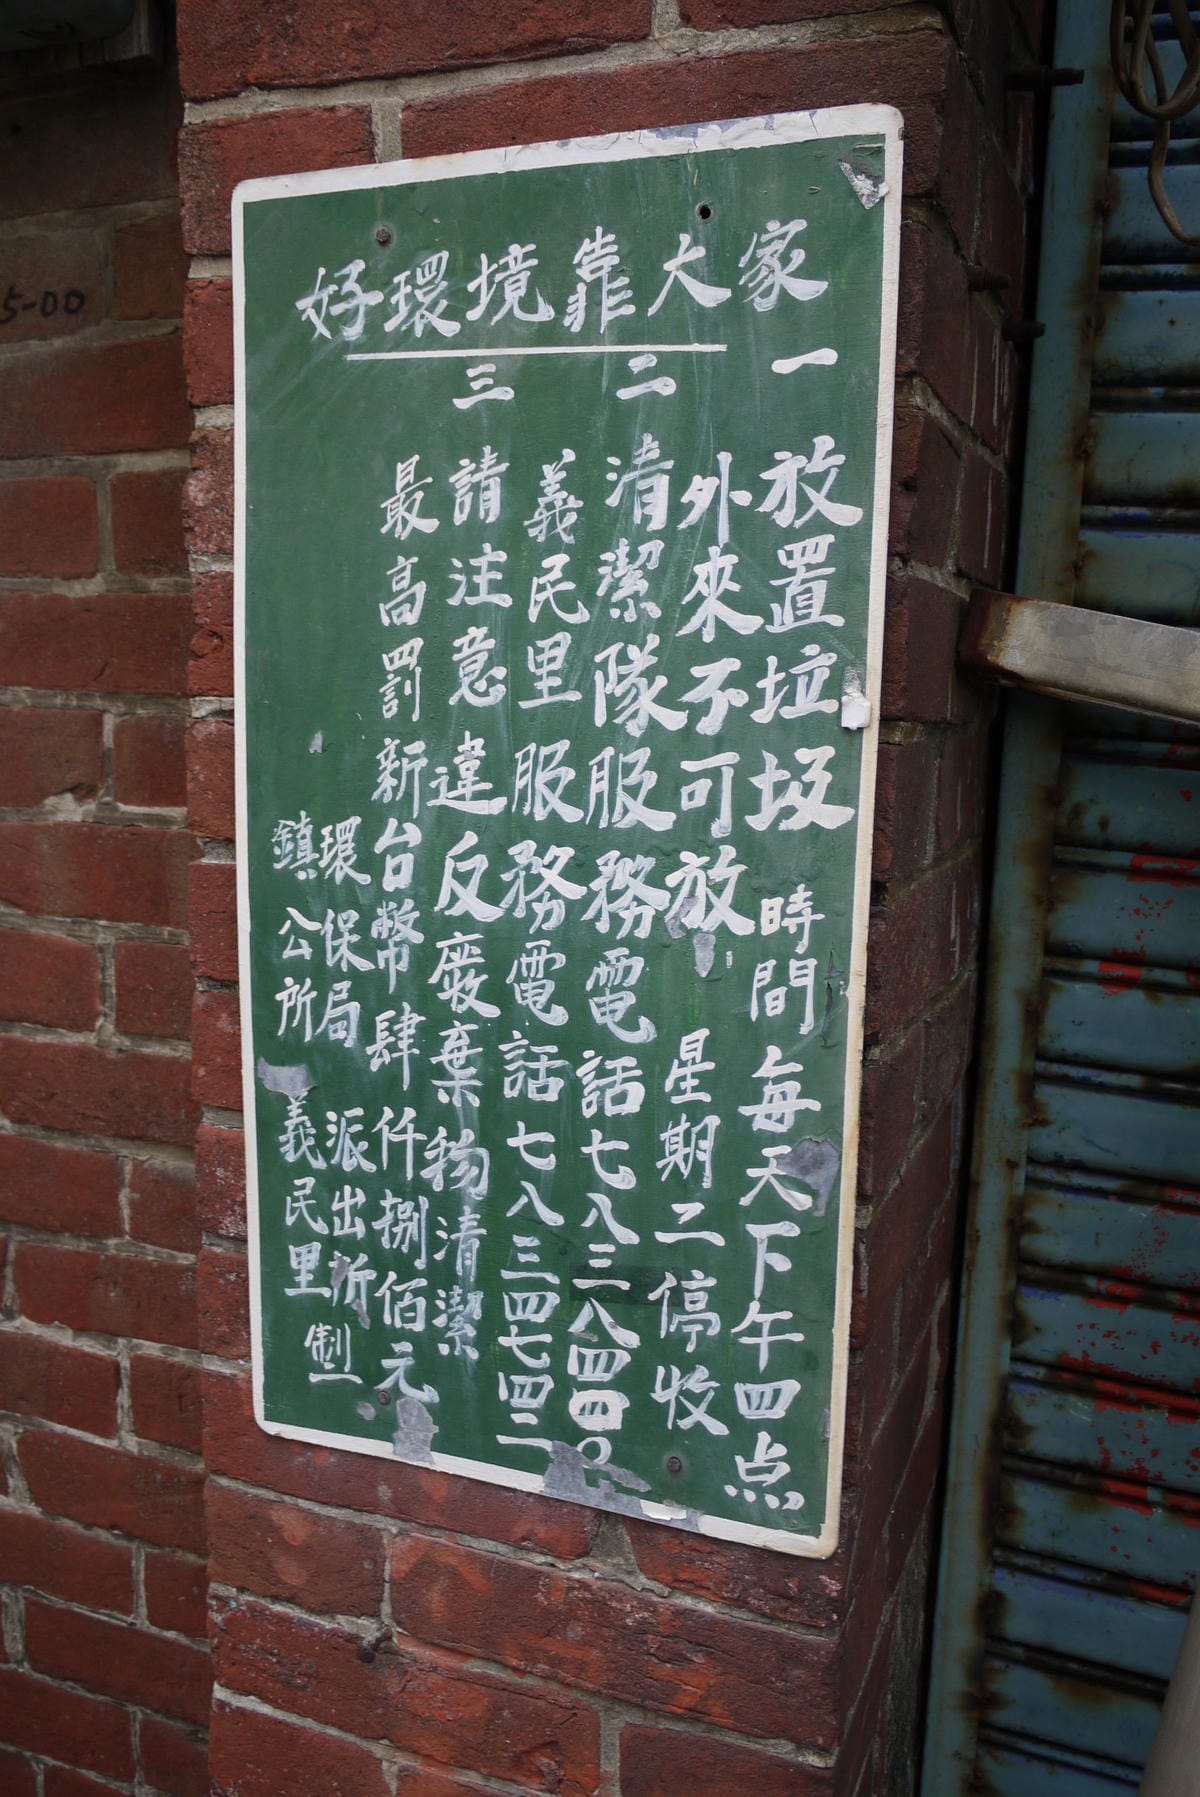 好環境靠大家
一 放置垃圾時間每天下午四点
外來不可放 星期二停收
二 清潔隊服務電話七八三八四四〇
義民里服務電話七八三四七四二
三 請注意違反廢棄物清潔
最高罰新台幣肆仟捌佰元
環保局 派出所
鎮公所 義民里
製
5-00